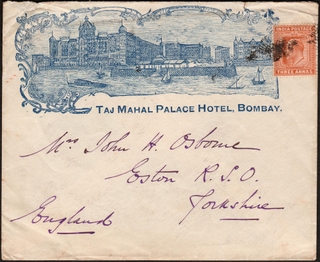 INDIA POSTAGE
THREE ANNAS
TAJ MAHAL PALACE HOTEL, BOMBAY.
Mrs John H. Osborne
Eston R. S. O.
Yorkshire
England